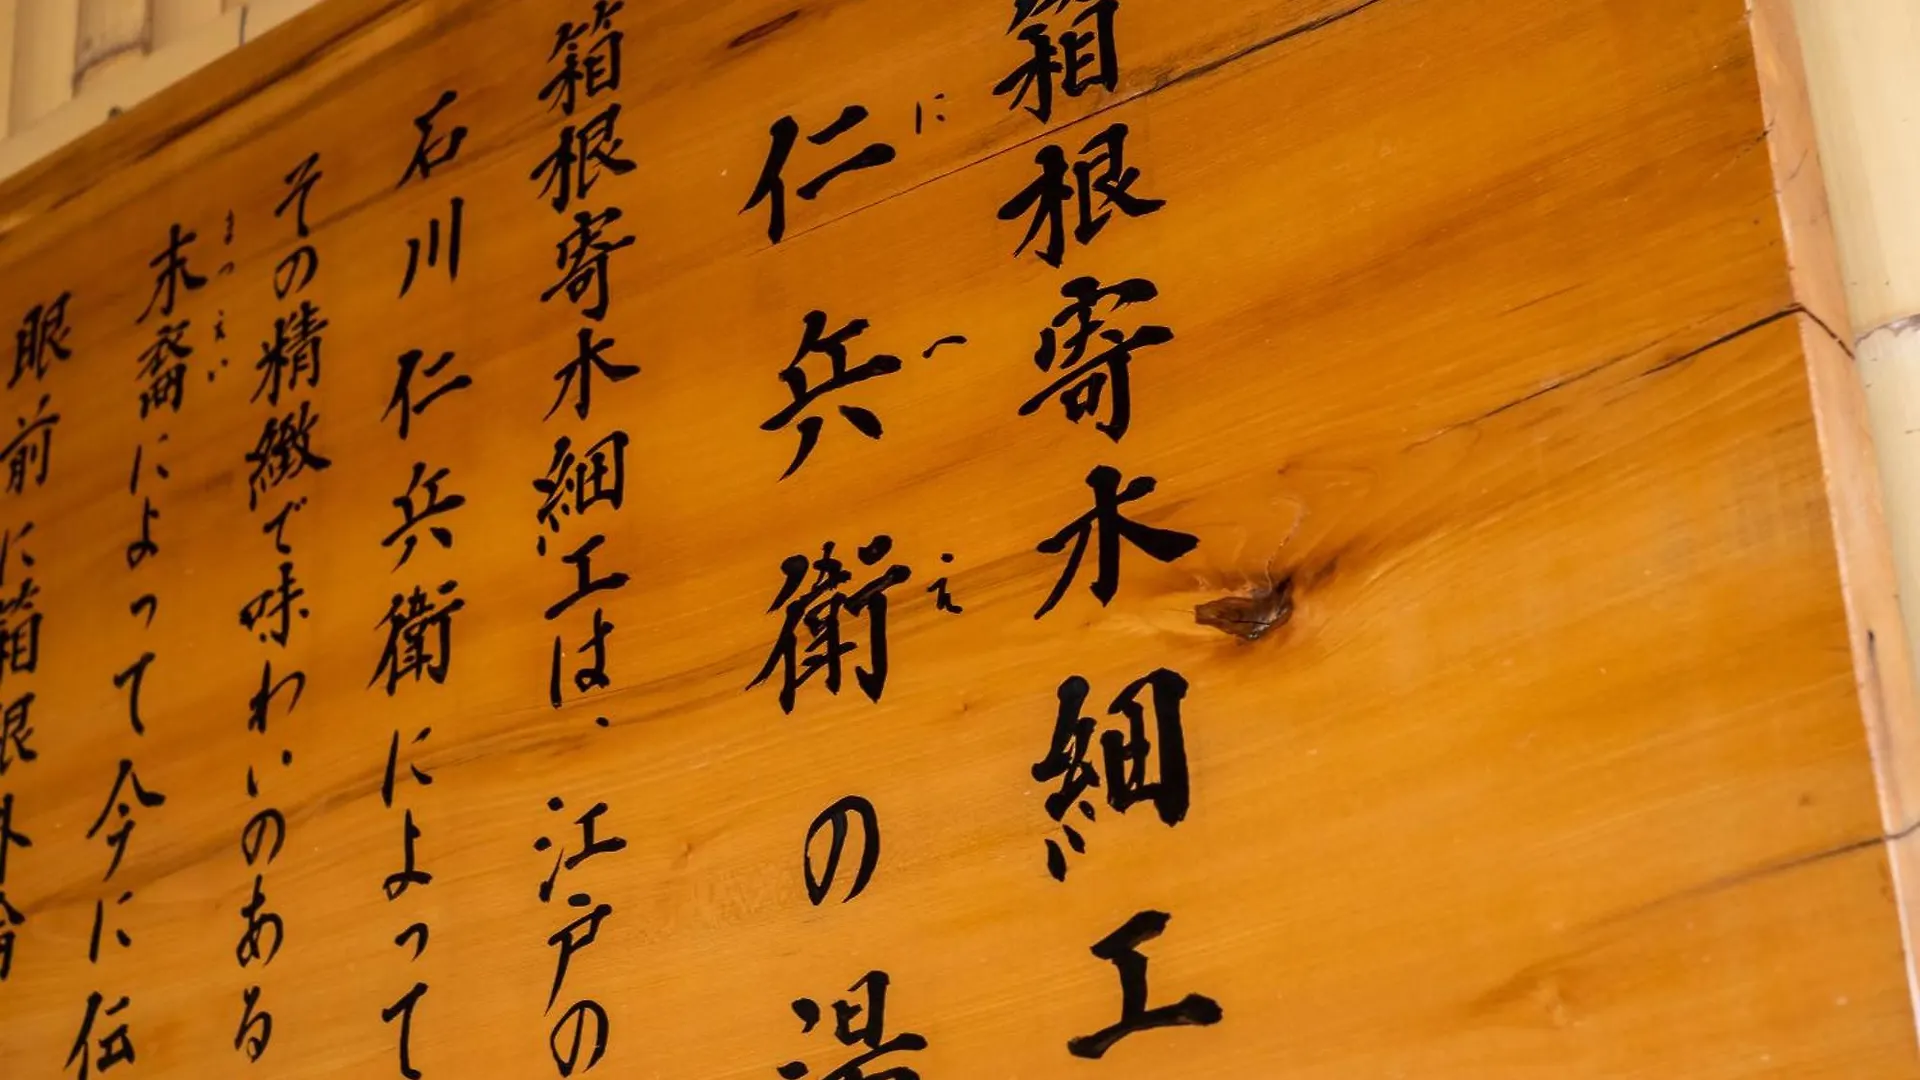 箱根寄木細工
にへえ
仁兵衛の湯
箱根寄木細工は、江戸の
石川仁兵衛によって
その精緻で味わいのある
まつえい
末裔によって今に伝
眼前に箱根外輪